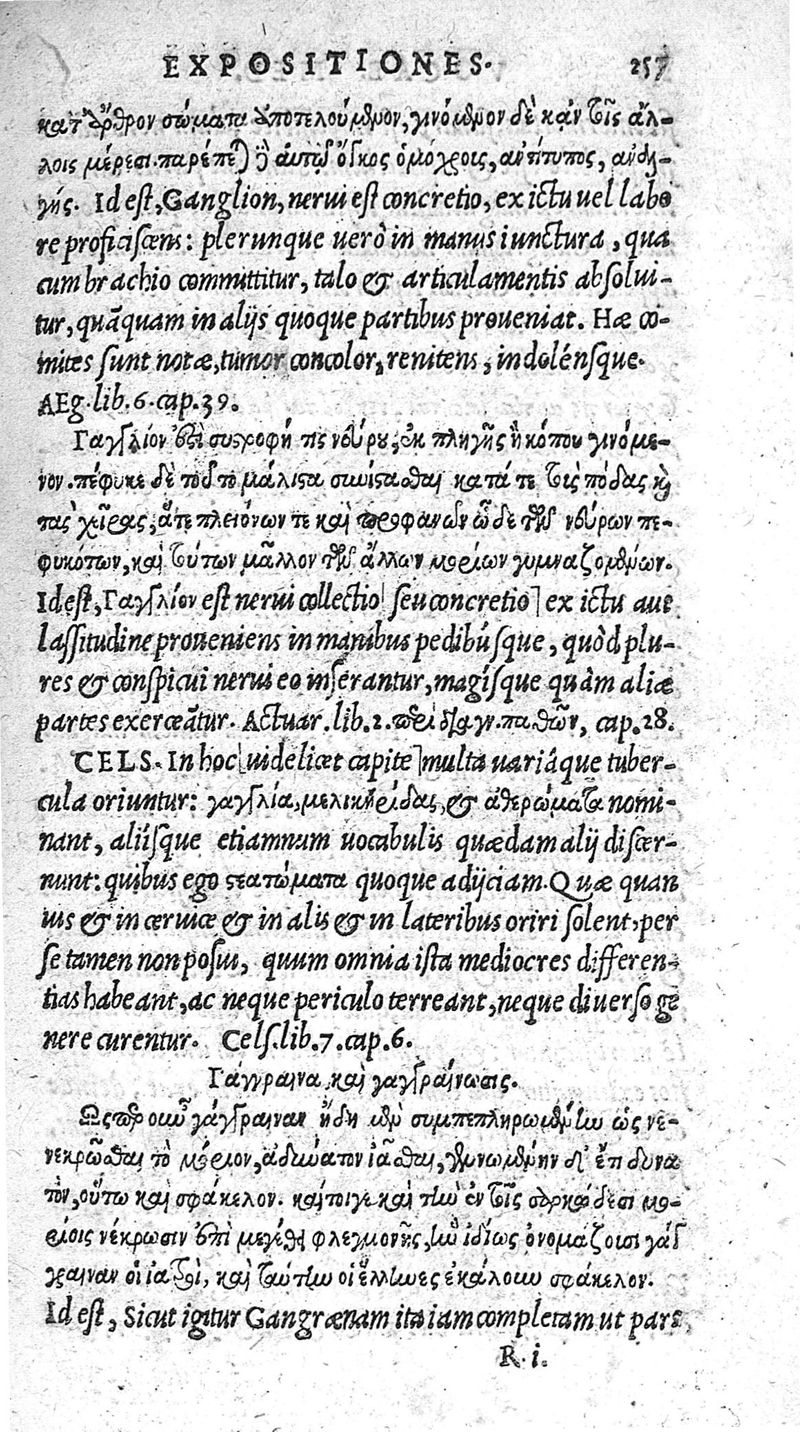 EXPOSITIONES. 257
κατ' ἄρθρον σώματα ὑποτελούμενον, γινόμενον δὲ κἀν τοῖς ἄλ-
λοις μέρεσι. παρέπεται δὲ αὐτῷ ὄγκος ὁμόχροις, ἀντίτυπος, ἀναλ-
γής. Id est, Ganglion, nerui est concretio, ex ictu uel labo
re proficiscens: plerunque uerò in manus iunctura, qua
cum brachio committitur, talo & articulamentis absolui-
tur, quãquam in alijs quoque partibus proueniat. Hæ co-
mites sunt notæ, tumor concolor, renitens, indolénsque.
AEg. lib. 6. cap. 39.
Γαγγλίον ἐστὶ συστροφή τις νεύρου, ἐκ πληγῆς ἢ κόπου γινόμε-
νον. πέφυκε δὲ τοῦτο μάλιστα συνίστασθαι κατά τε τοὺς πόδας καὶ
τὰς χεῖρας, ἅτε πλειόνων τε καὶ προφανῶν ὧδε τῶν νεύρων πε-
φυκότων, καὶ τούτων μᾶλλον τῶν ἄλλων μορίων γυμναζομένων.
Id est, Γαγγλίον est nerui collectio [seu concretio] ex ictu aut
lassitudine proueniens in manibus pedibúsque, quòd plu-
res & conspicui nerui eo inserantur, magísque quàm aliæ
partes exerceãtur. Actuar. lib. 2. περὶ διαγν. παθῶν, cap. 28.
CELS. In hoc [uidelicet capite] multa uariáque tuber-
cula oriuntur: γαγγλία, μελικηρίδας, & ἀθερώματα nomi-
nant, aliísque etiamnum uocabulis quædam alij discer-
nunt: quibus ego στεατώματα quoque adijciam. Quæ quan
uis & in ceruice & in alis & in lateribus oriri solent, per
se tamen non posui, quum omnia ista mediocres differen-
tias habeant, ac neque periculo terreant, neque diuerso ge
nere curentur. Cels. lib. 7. cap. 6.
Γάγγραινα καὶ γαγγραίνωσις.
Ὥσπερ οὖν γάγγραιναν ἤδη μὲν συμπεπληρωμένην ὡς νε-
νεκρῶσθαι τὸ μόριον, ἀδύνατον ἰᾶσθαι, γινομένην δ' ἔτι δυνα
τὸν, οὕτω καὶ σφάκελον. καίτοιγε καὶ τὴν ἐν τοῖς σαρκώδεσι μο-
ρίοις νέκρωσιν ἐπὶ μεγέθει φλεγμονῆς, ἣν ἰδίως ὀνομάζουσι γάγ
γραιναν οἱ ἰατροὶ, καὶ ταύτην οἱ ἕλληνες ἐκάλουν σφάκελον.
Id est, Sicut igitur Gangrænam ita iam completam ut pars
R. i.